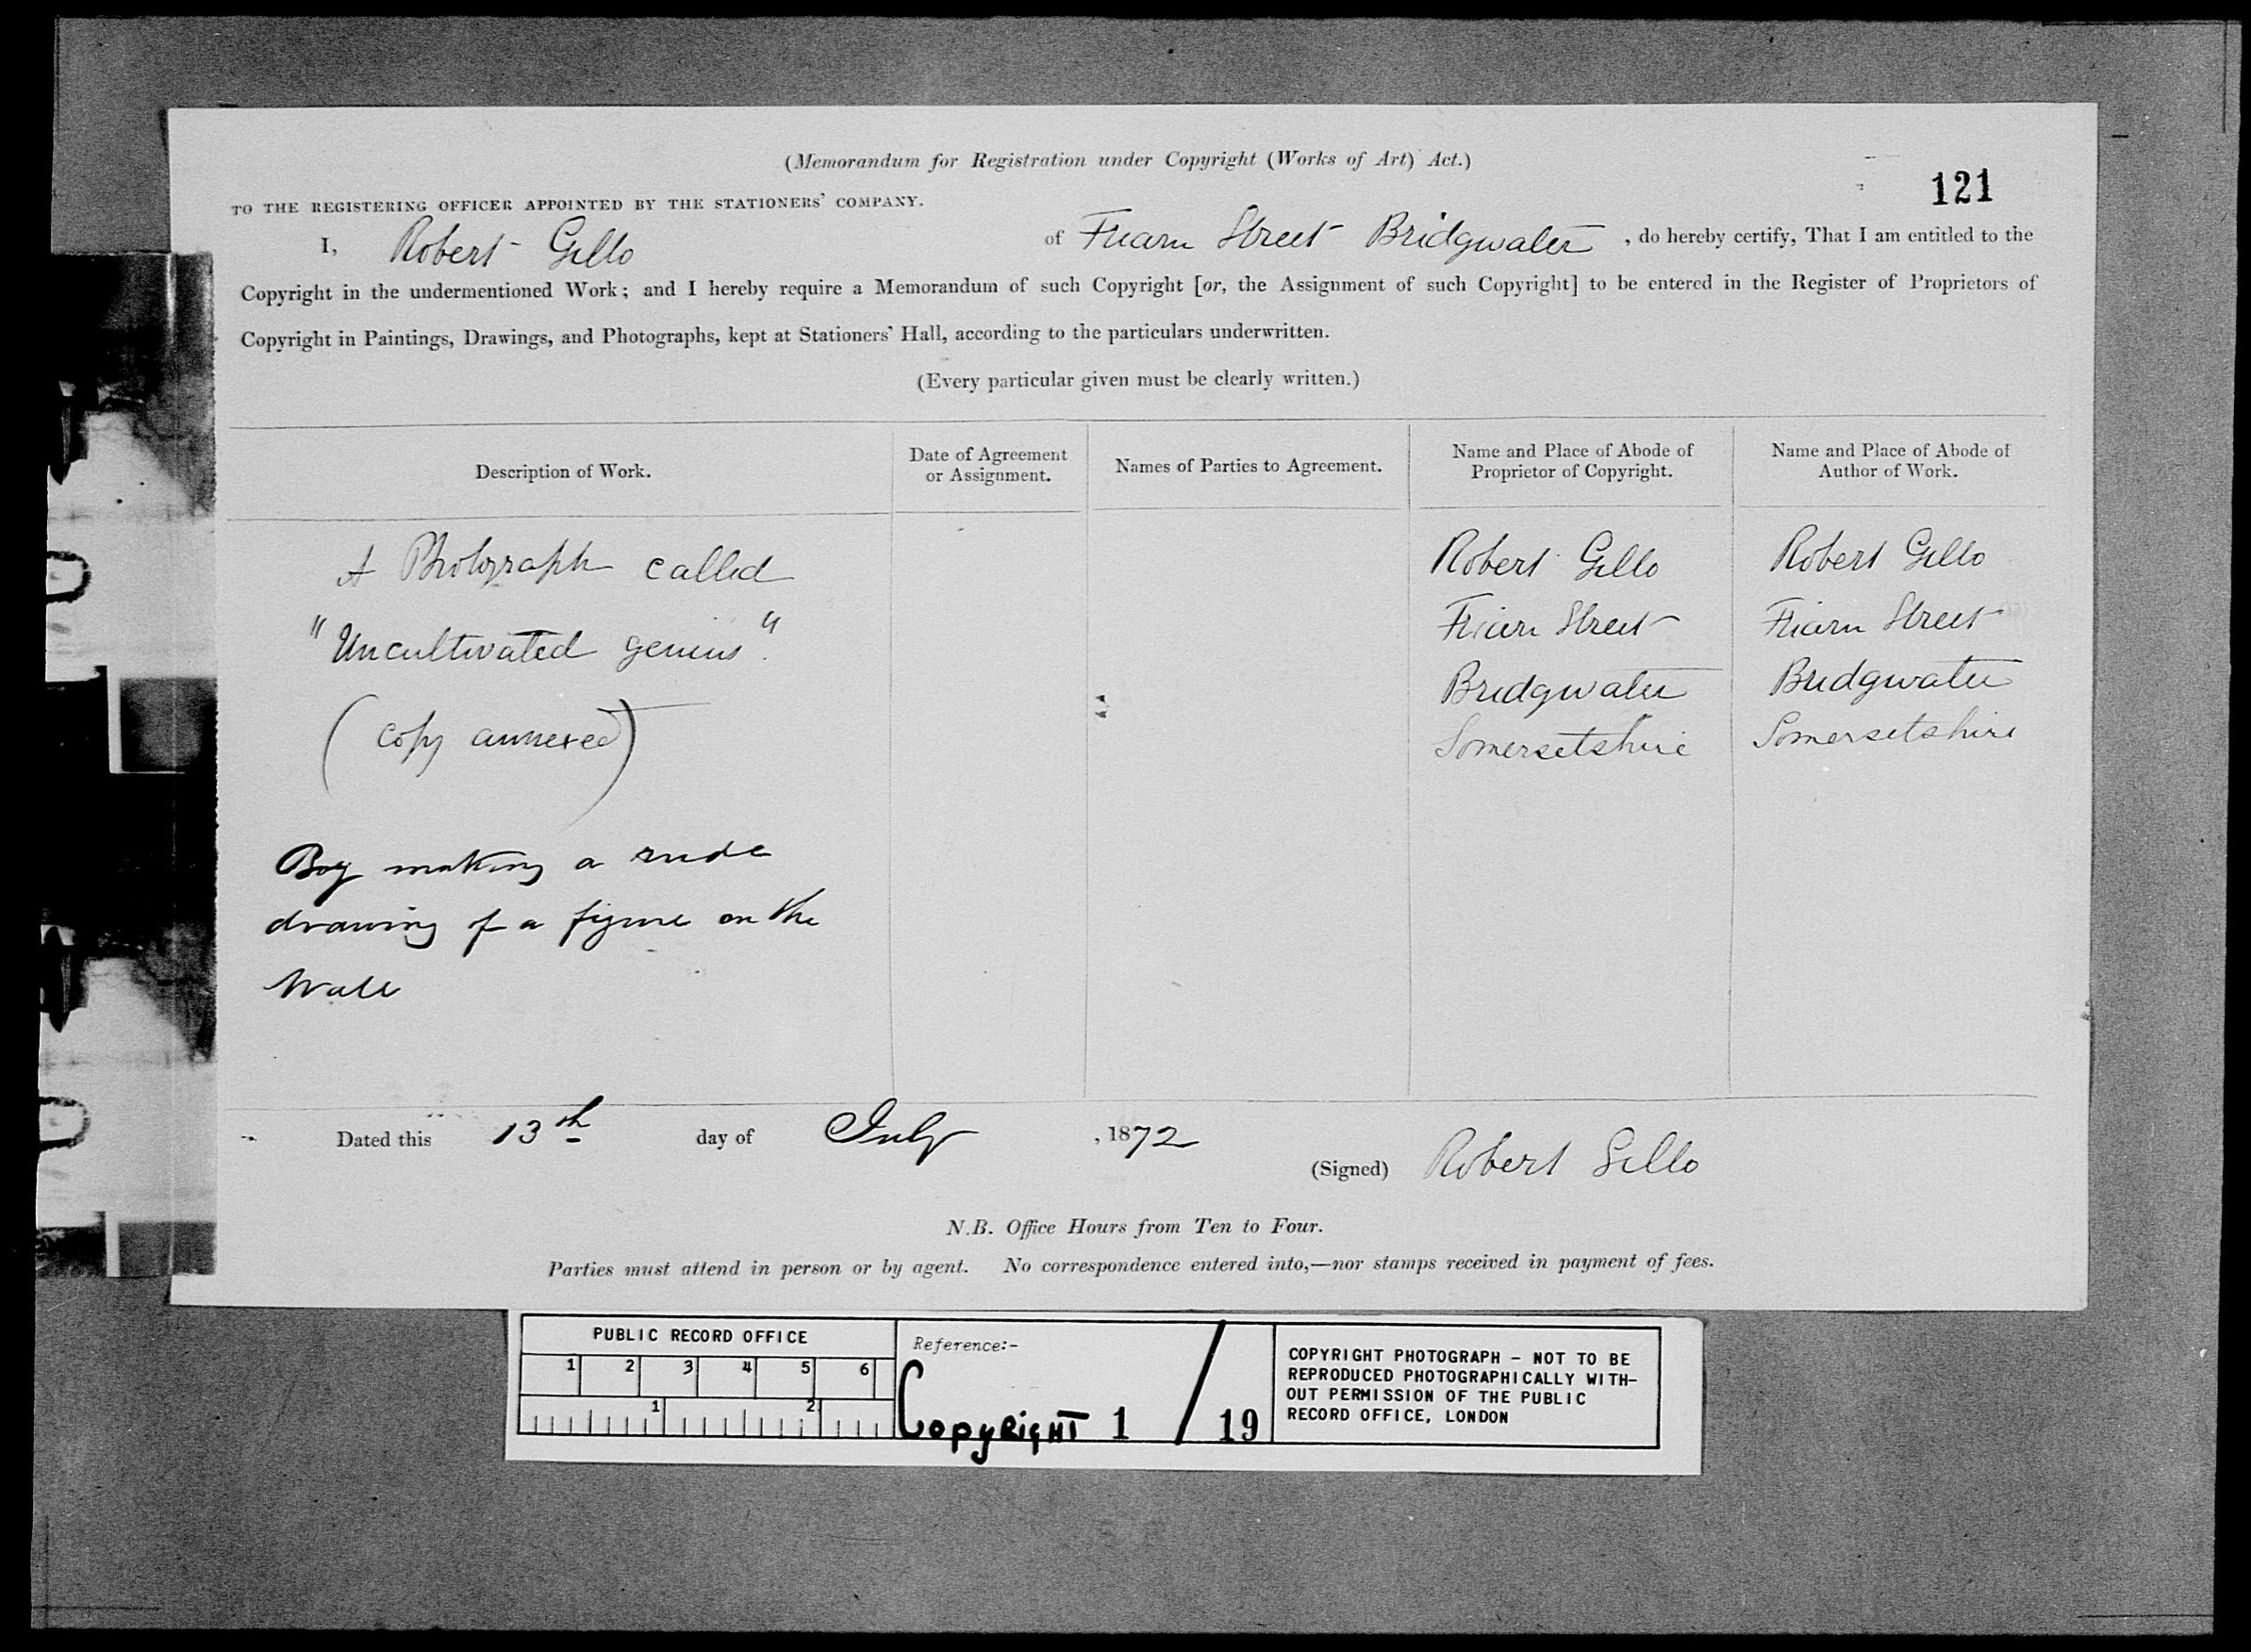 (Memorandum for Registration under Copyright (Works of Art) Act.)
121
TO THE REGISTERING OFFICER APPOINTED BY THE STATIONERS' COMPANY.
I, Robert Gillo of Friarn Street Bridgwater, do hereby certify, That I am entitled to the
Copyright in the undermentioned Work; and I hereby require a Memorandum of such Copyright [or, the Assignment of such Copyright] to be entered in the Register of Proprietors of
Copyright in Paintings, Drawings, and Photographs, kept at Stationers' Hall, according to the particulars underwritten.
(Every particular given must be clearly written.)
Description of Work.
Date of Agreement
or Assignment.
Names of Parties to Agreement.
Name and Place of Abode of
Proprietor of Copyright.
Name and Place of Abode of
Author of Work.
A Photograph called
"Uncultivated genius".
(Copy annexed)
Boy making a rude
drawing of a figure on the
Wall
Robert Gillo
Friarn Street
Bridgwater
Somersetshire
Robert Gillo
Friarn Street
Bridgwater
Somersetshire
Dated this 13th day of July, 1872
(Signed) Robert Gillo
N.B. Office Hours from Ten to Four.
Parties must attend in person or by agent. No correspondence entered into,—nor stamps received in payment of fees.
PUBLIC RECORD OFFICE
1 2 3 4 5 6
1 2
Reference:-
Copyright 1 / 19
COPYRIGHT PHOTOGRAPH - NOT TO BE
REPRODUCED PHOTOGRAPHICALLY WITH-
OUT PERMISSION OF THE PUBLIC
RECORD OFFICE, LONDON